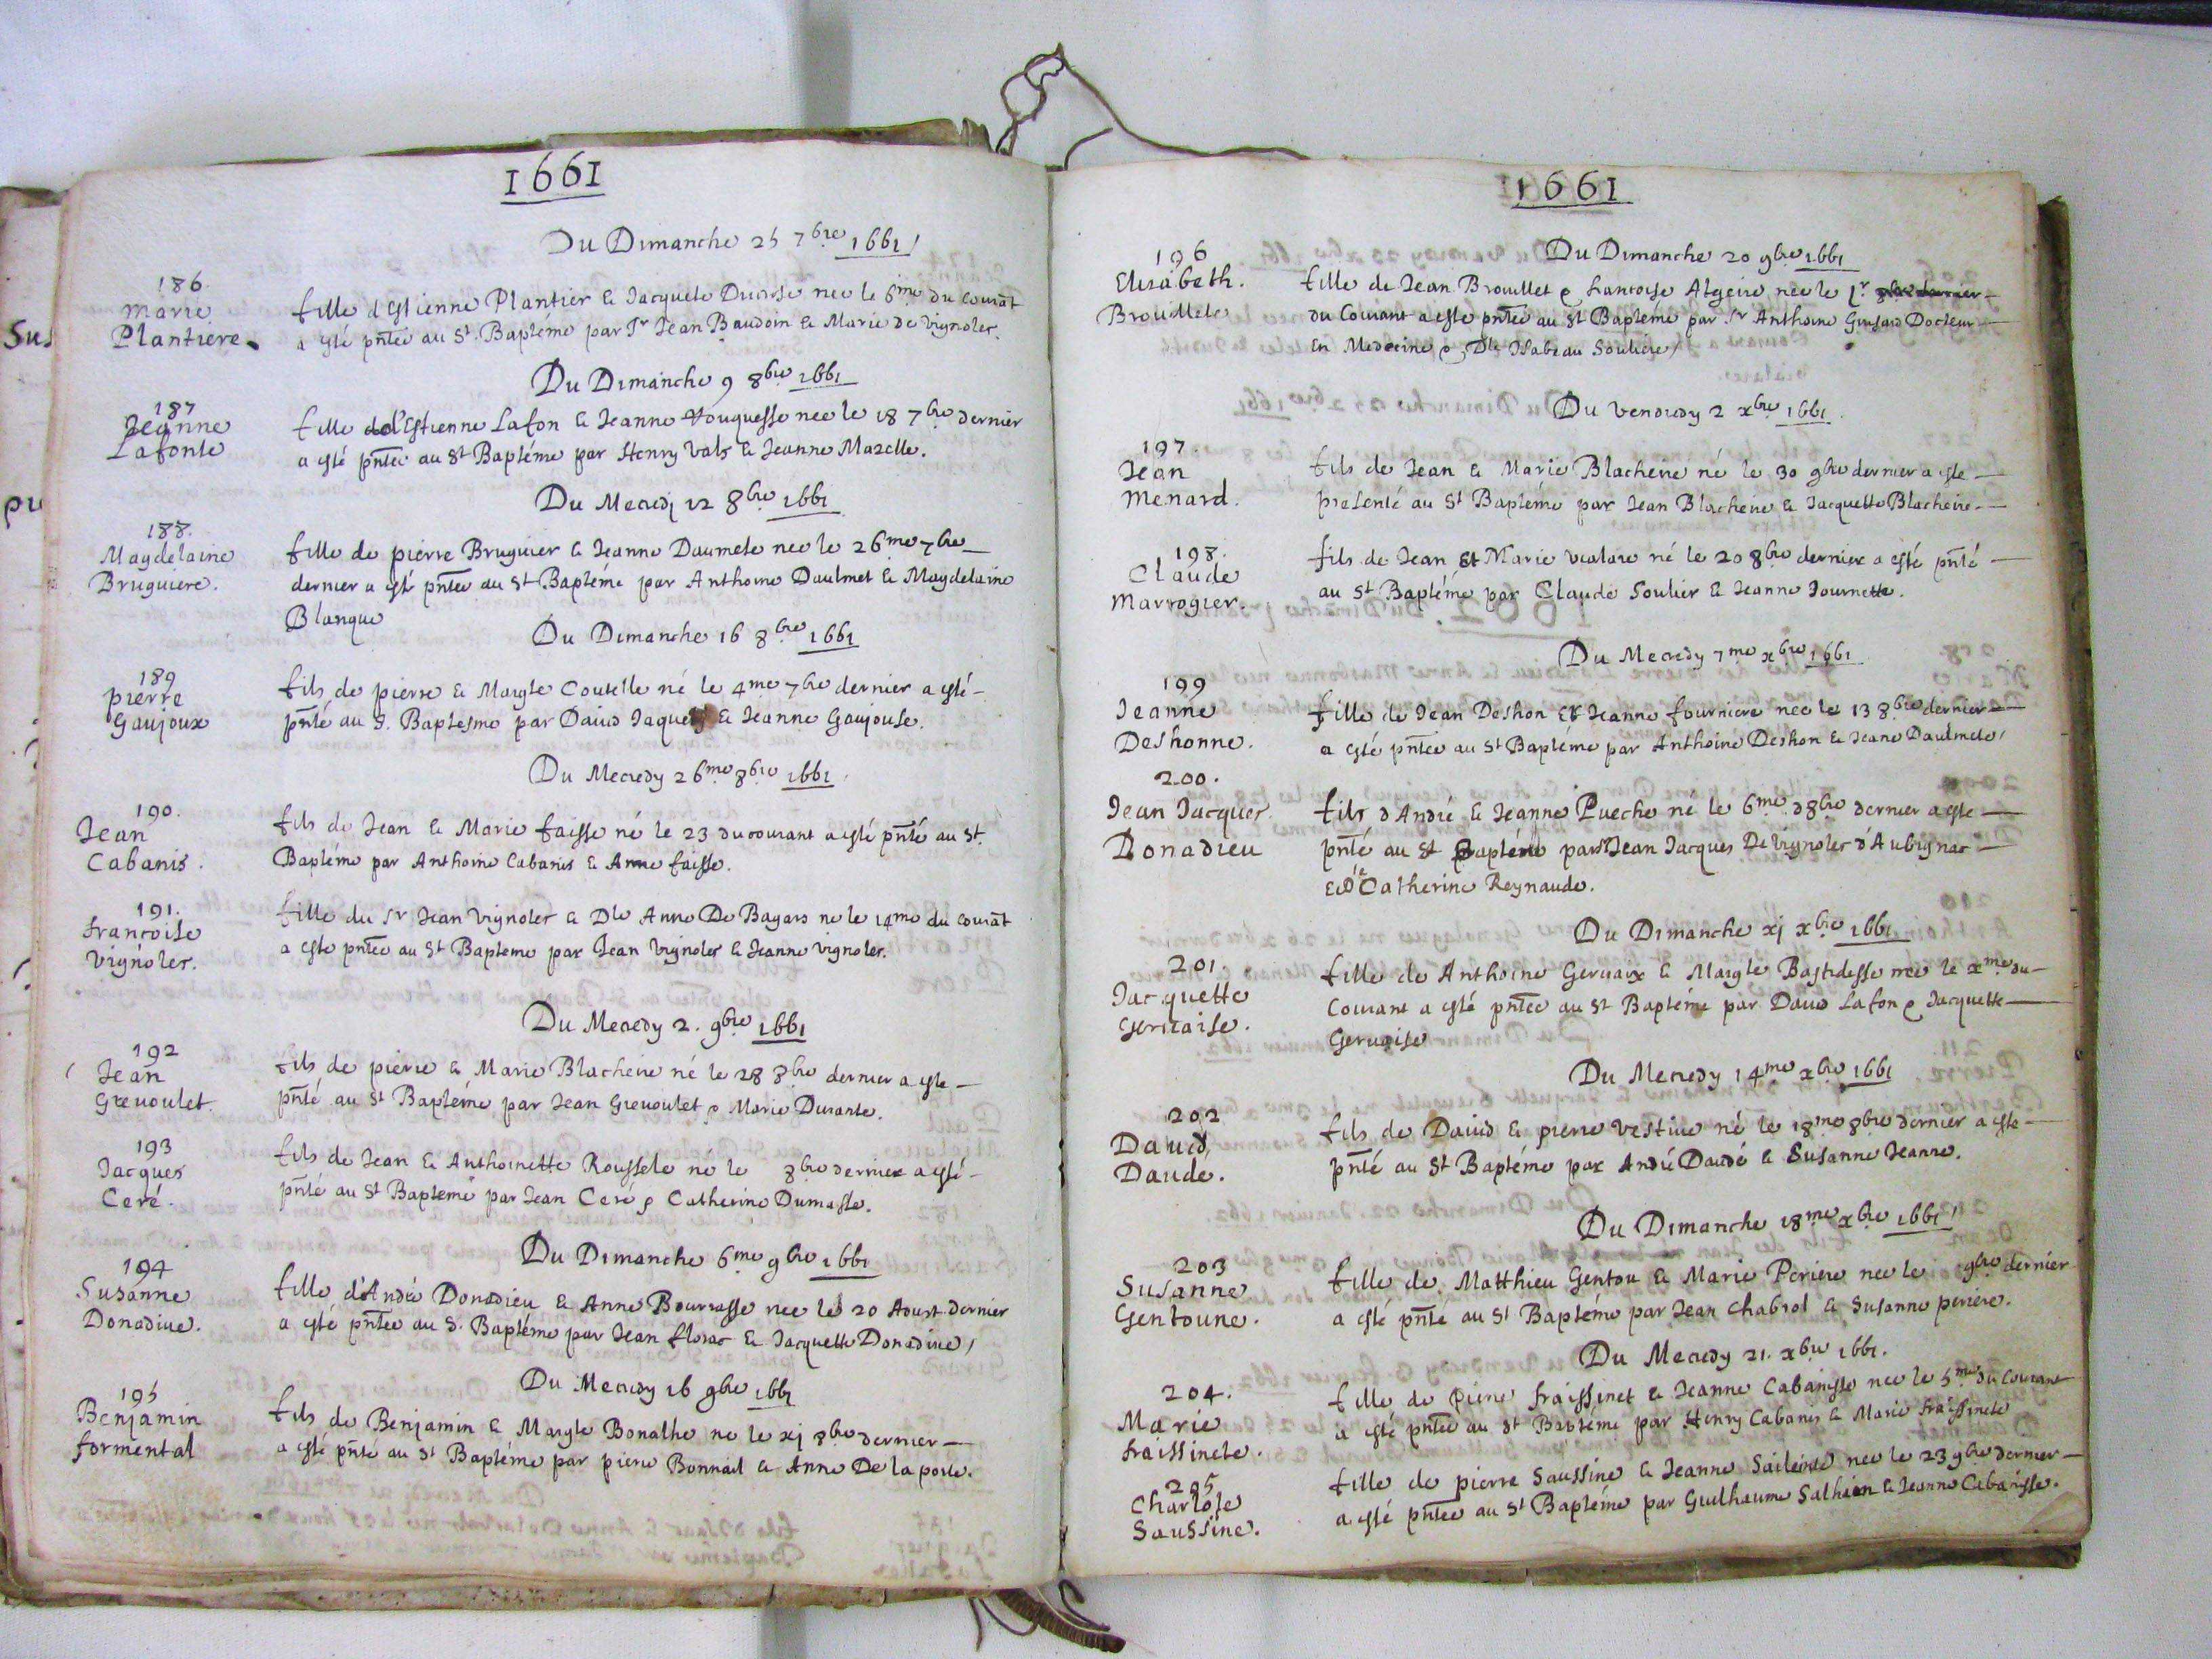 1661
Du Dimanche 25 7bre 1661
186
Marie
Plantiere
fille d'Estienne Plantier & Jacquete née le 6me du courat
a esté pntée au St Baptéme par Sr Jean Baudoin & Marie de Vignoles
Du Dimanche 9 8bre 1661
187
Jeanne
Lafonte
fille d'Estienne Lafon & Jeanne née le 18 7bre dernier
a esté pntée au St Baptéme par Henry Vals & Jeanne Mazelle.
Du Mecredj 12 8bre 1661
188.
Magdelaine
Bruguiere.
fille de pierre Bruguier & Jeanne Daumete née le 26me 7bre
dernier a esté pntée au St Baptéme par Anthoine Daulmet & Magdelaine
Blanque
Du Dimanche 16 8bre 1661
189
pierre
Gaujoux
fils de pierre & Margte Coutelle né le 4me 7bre dernier a esté
pnté au S. Baptesme par David & Jeanne Gaujouse.
Du Mecredy 26me 8bre 1661
190.
Jean
Cabanis.
fils de Jean & Marie faisse né le 23 du courant a esté pnté au St
Baptéme par Anthoine Cabanis & Anne faisse.
191.
francoise
Vignoles.
fille du Sr Jean Vignoles & Dle Anne De Bagars ne le 14me du courat
a esté pntée au St Bapteme par Jean Vignoles & Jeanne Vignoles.
Du Mecredy 2. 9bre 1661
192
Jean
Greuoulet
fils de pierre & Marie Blacheire né le 28 8bre dernier a este
pnté au St Baptéme par Jean Greuoulet & Marie Durante.
193
Jacques
Ceré.
fils de Jean & Anthoinette Roussele né le 8bre dernier a esté
pnté au St Bapteme par Jean Ceré & Catherine Dumasse.
Du Dimanche 6me 9bre 1661
194
Susanne
Donadiue.
fille d'André Donadieu & Anne Bourrasse née le 20 Aoust dernier
a esté pntée au S. Baptéme par Jean florac & Jacquette Donadiue
Du Mecredy 16 9bre 1661
195
Benjamin
formental
fils de Benjamin & Margte Bonalhe ne le xj 8bre dernier
a esté pnte au St Baptéme par pierre Bonnail & Anne De la porte.
1661
Du Dimanche 20 9bre 1661
196
Elisabeth.
Brouillete
fille de Jean Brouillet & francoise Algeire née le 1r
du Courant a esté pntée au St Baptéme par Sr Anthoine Docteur
En Medecine & Dle Isabeau Souliere
Du Vendredy 2 xbre 1661
197.
Jean
Menard.
fils de Jean & Marie Blacheire né le 30 9bre dernier a este
presenté au St Baptéme par Jean Blacheire & Jacquette Blacheire.
198.
Claude
Marrogier.
fils de Jean Et Marie Vialare né le 20 8bre dernier a esté pnté
au St Baptéme par Claude Soulier & Jeanne Journette.
Du Mecredy 7me xbre 1661
199
Jeanne
Deshonne.
fille de Jean Deshon Et Jeanne fourniere née le 13 8bre dernier
a esté pntée au St Baptéme par Anthoine Deshon & Jeane Daulmete
200.
Jean Jacques
Donadieu
fils d'André & Jeanne Pueche né le 6me d8bre dernier a este
pnté au St Baptéme par Sr Jean Jacques De Vignoles d'Aubignac
& Dle Catherine Reynaude.
Du Dimanche xj xbre 1661
201.
Jacquette
Geruaise.
fille de Anthoine Geruaix & Margte Bastidesse née le xme du
Courant a esté pntée au St Baptéme par Dauid Lafon & Jacquette
Geruaise
Du Mecredy 14me xbre 1661
202
Dauid
Daudé.
fils de Dauid & pierre Vestiue né le 18me 8bre dernier a este
pnté au St Baptéme par André Daudé & Susanne Jeanne.
Du Dimanche 18me xbre 1661
203
Susanne
Gentoune.
fille de Matthieu Gentou & Marie Periere née le 9bre dernier
a esté pnté au St Baptéme par Jean Chabrol & Susanne periere.
Du Mecredy 21. xbre 1661.
204.
Marie
fraissinete.
fille de pierre fraissinet & Jeanne Cabanisse née le 5me du Courant
a esté pntée au St Baptéme par Henry Cabanis & Marie fraissinete
205
Charlote
Saussine.
fille de pierre Saussine & Jeanne née le 23 9bre dernier
a esté pntée au St Baptéme par Guilhaume & Jeanne Cabanisse.